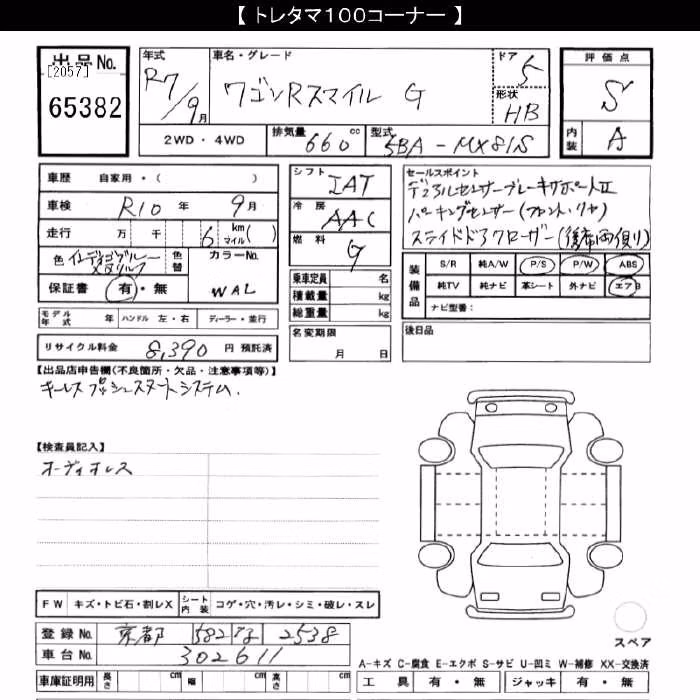 【 トレタマ100コーナー 】
出品No. [2057] 65382
年式 R7/9月
車名・グレード ワゴンRスマイル G
ドア 5
形状 HB
評価点 S
内装 A
2WD・4WD 排気量 660 cc 型式 5BA-MX81S
車歴 自家用・( )
車検 R10 年 9月
走行 万 千 6 km マイル ( )
色 インディゴブルー メタリック 色替 カラーNo. WAL
保証書 有・無
モデル年式 年 ハンドル 左・右 ディーラー・並行
リサイクル料金 8,390 円 預託済
シフト IAT
冷房 AAC
燃料 G
乗車定員 名
積載量 kg
総重量 kg
名変期限 月 日
セールスポイント
デュアルセンサーブレーキサポートⅡ
パーキングセンサー(フロント・リヤ)
スライドドアクローザー(後席両側)
装備品 S/R 純A/W P/S P/W ABS
純TV 純ナビ 革シート 外ナビ エアB
ナビ型番:
後日品
【出品店申告欄(不良箇所・欠品・注意事項等)】
キーレスプッシュスタートシステム.
【検査員記入】
オーディオレス
FW キズ・トビ石・割レX シート内装 コゲ・穴・汚レ・シミ・破レ・スレ
登録No. 京都 582 2538
車台No. 302611
車庫証明用 長さ cm 幅 cm 高さ cm
スペア
A-キズ C-腐食 E-エクボ S-サビ U-凹ミ W-補修 XX-交換済
工具 有・無 ジャッキ 有・無